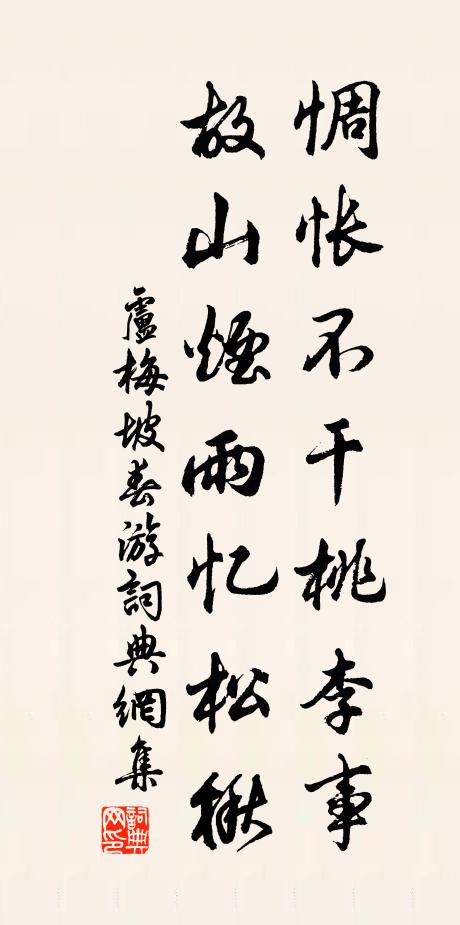 惆怅不干桃李事
故山煙雨忆松楸
盧梅坡春游詞典網集
詞典网印